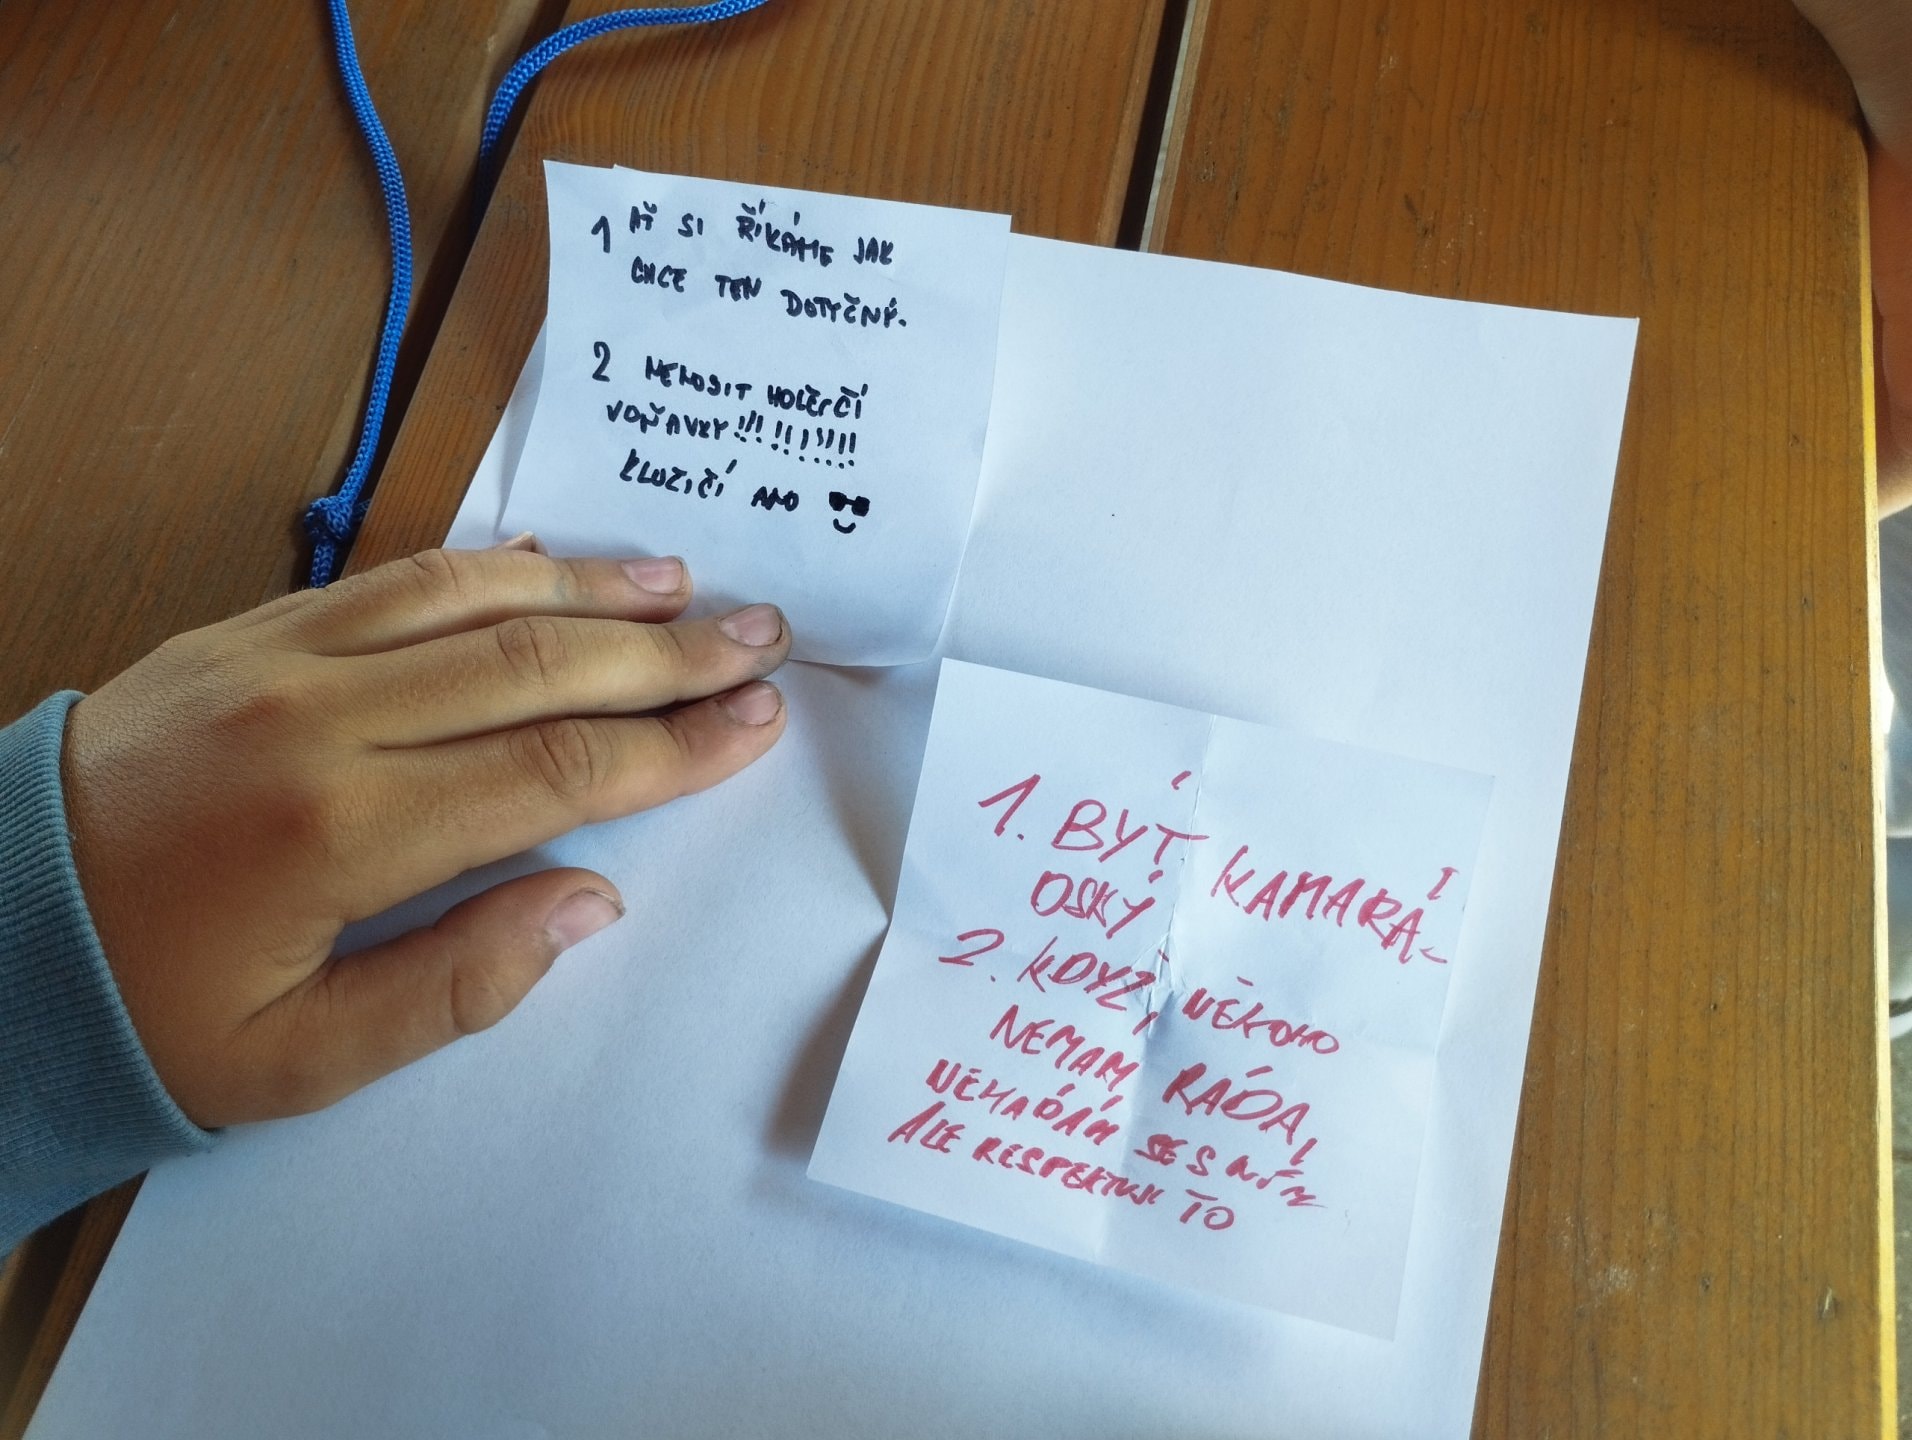 1 AŤ SI ŘÍKÁME JAK
CHCE TEN DOTYČNÝ.
2 NENOSIT HOLČIČÍ
VOŇAVKY!!!!!!!!!!
KLUČIČÍ ANO
1. BÝT KAMARÁ-
DSKÝ
2. KDYŽ, NĚKOHO
NEMAM RÁDA,
NEHÁDÁM SE S NÍM
ALE RESPEKTUJI TO